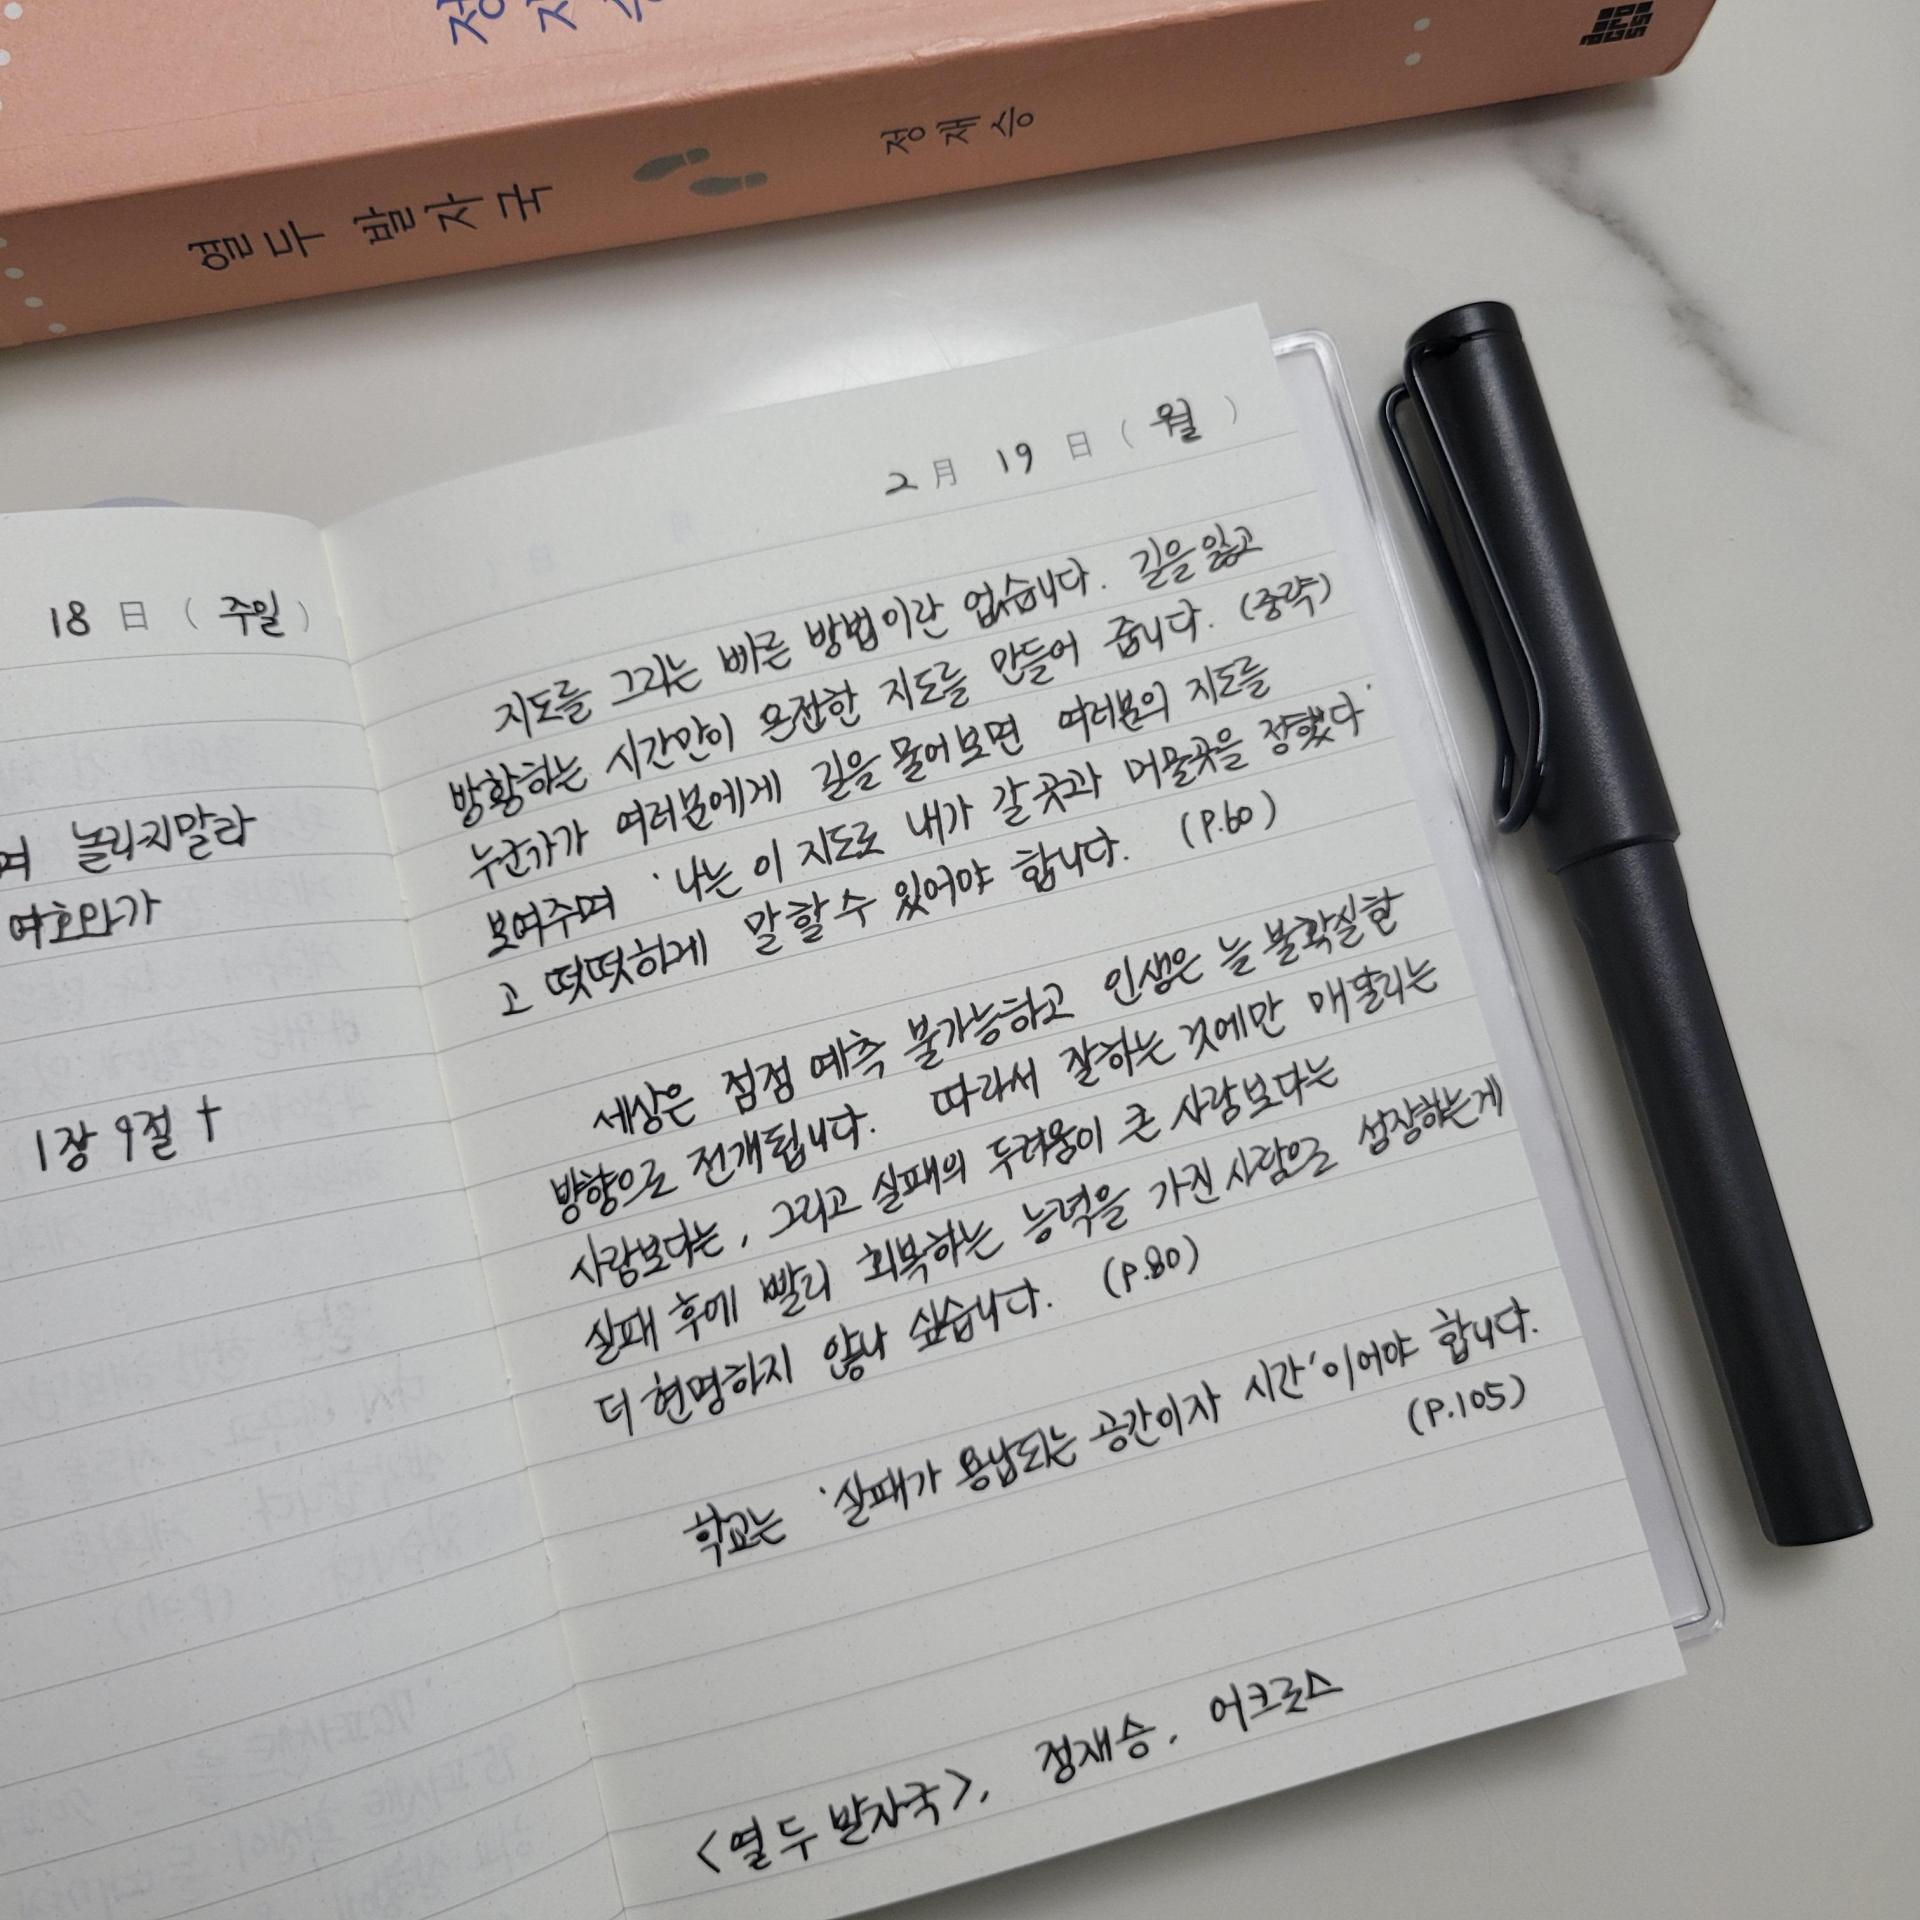 정재승
열두 발자국 정재승
18 日 ( 주일 )
놀라지말라
여호와가
1장 9절 †
2 月 19 日 ( 월 )
지도를 그리는 빠른 방법이란 없습니다. 길을 잃고
방황하는 시간만이 온전한 지도를 만들어 줍니다. (중략)
누군가가 여러분에게 길을 물어보면 여러분의 지도를
보여주며 '나는 이 지도로 내가 갈 곳과 머물곳을 정했다'
고 떳떳하게 말할 수 있어야 합니다. (P.60)
세상은 점점 예측 불가능하고 인생은 늘 불확실한
방향으로 전개됩니다. 따라서 잘하는 것에만 매달리는
사람보다는, 그리고 실패의 두려움이 큰 사람보다는
실패 후에 빨리 회복하는 능력을 가진 사람으로 성장하는게
더 현명하지 않나 싶습니다. (P.80)
학교는 '실패가 용납되는 공간이자 시간'이어야 합니다.
(P.105)
<열두 발자국>, 정재승, 어크로스